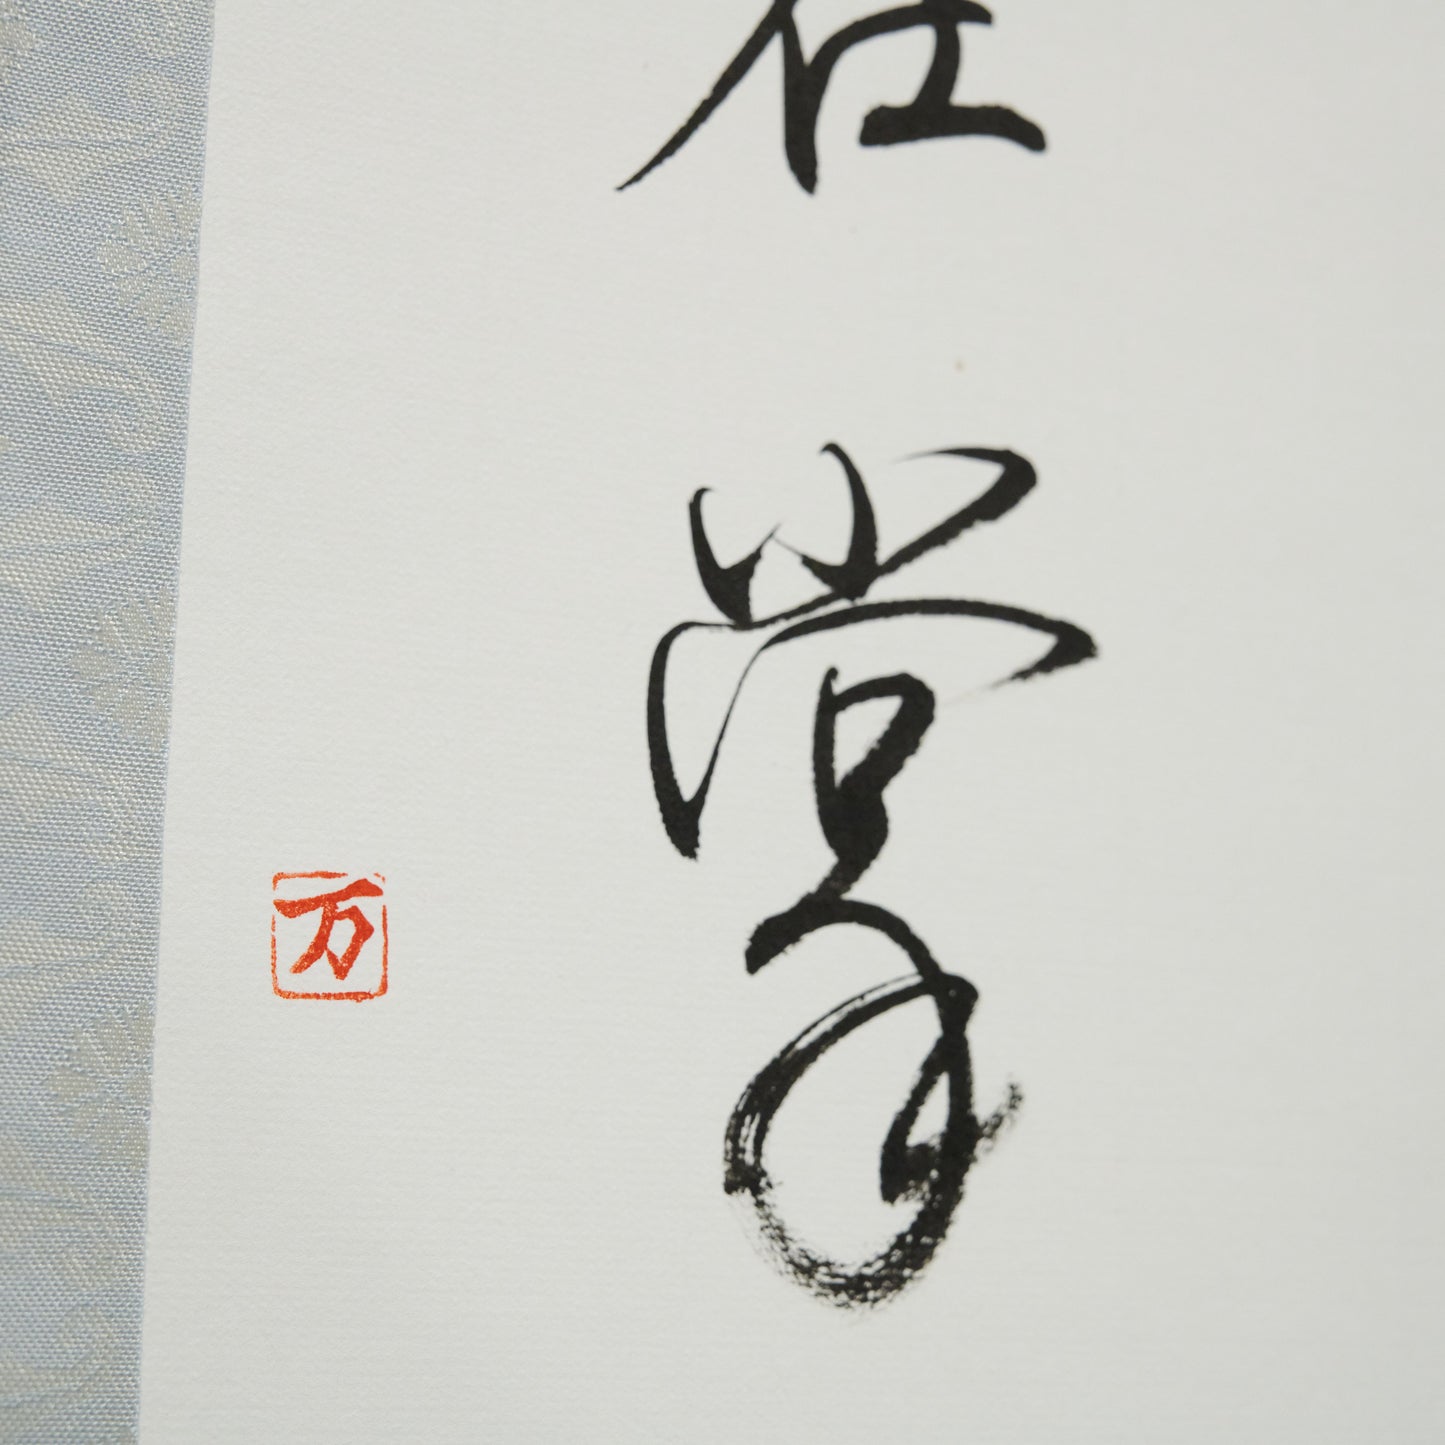 在掌
万